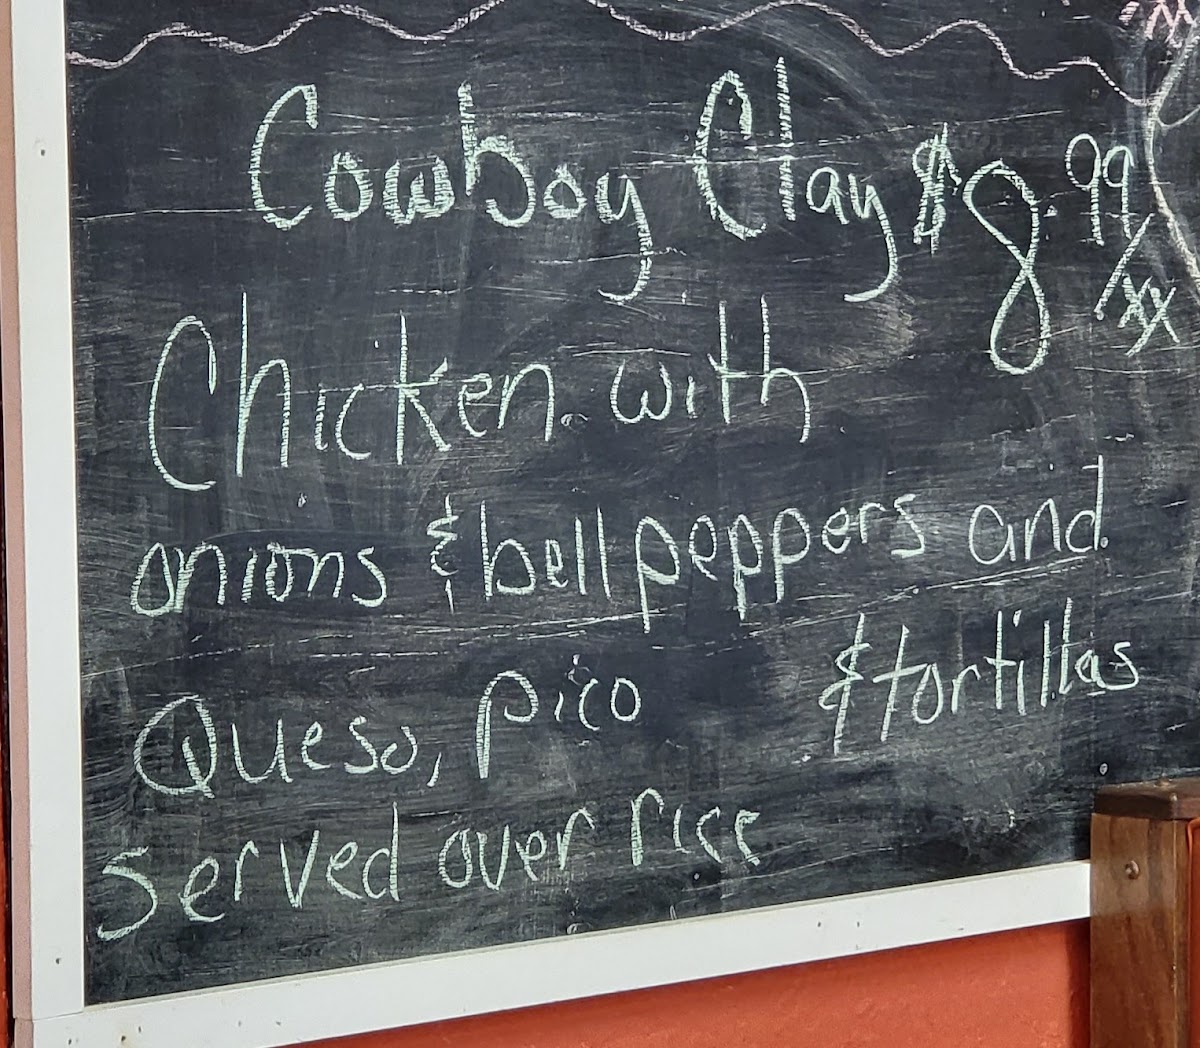 Cowboy Clay $8.99/xx
Chicken with
onions & bell peppers and
Queso, pico & tortillas
served over rice